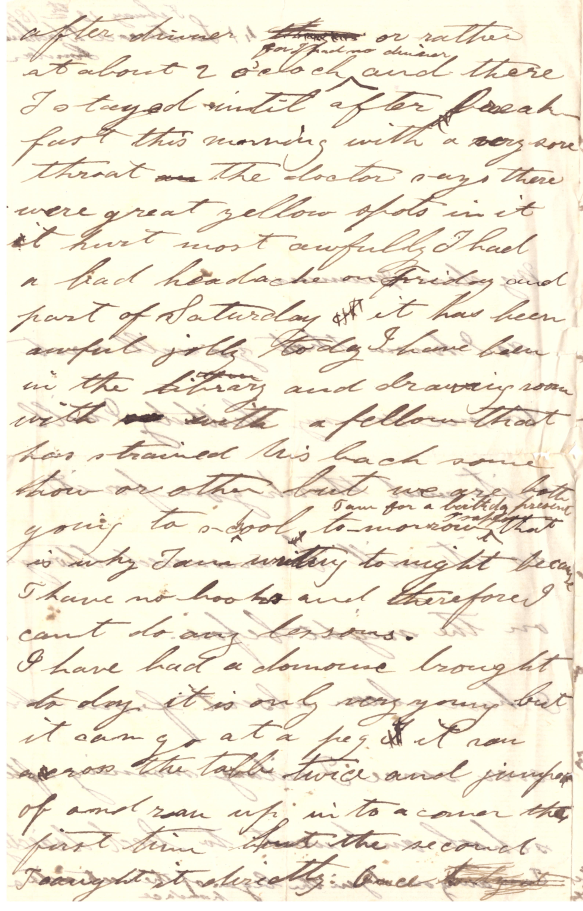 after dinner or rather
for I had no dinner
at about 2 o'cloch and there
I stayed until after Breah
fast this morning with a very sore
throat the doctor says there
were great yellow spots in it
it hurt most awfully I had
a bad headache on Friday and
part of Saturday it has been
awful jolly today I have been
in the library and drawing room
with with a fellow that
has strained his back some
how or other but we are both
I am for a birthday present
going to school to-morrow that
is why I am writing to night becaus
I have no books and therefore I
cant do any lessons.
I have had a domouse brought
to day it is only very young but
it can go at a peg it ran
across the table twice and jumped
of and ran up in to a corner the
first time but the second
I caught it directly